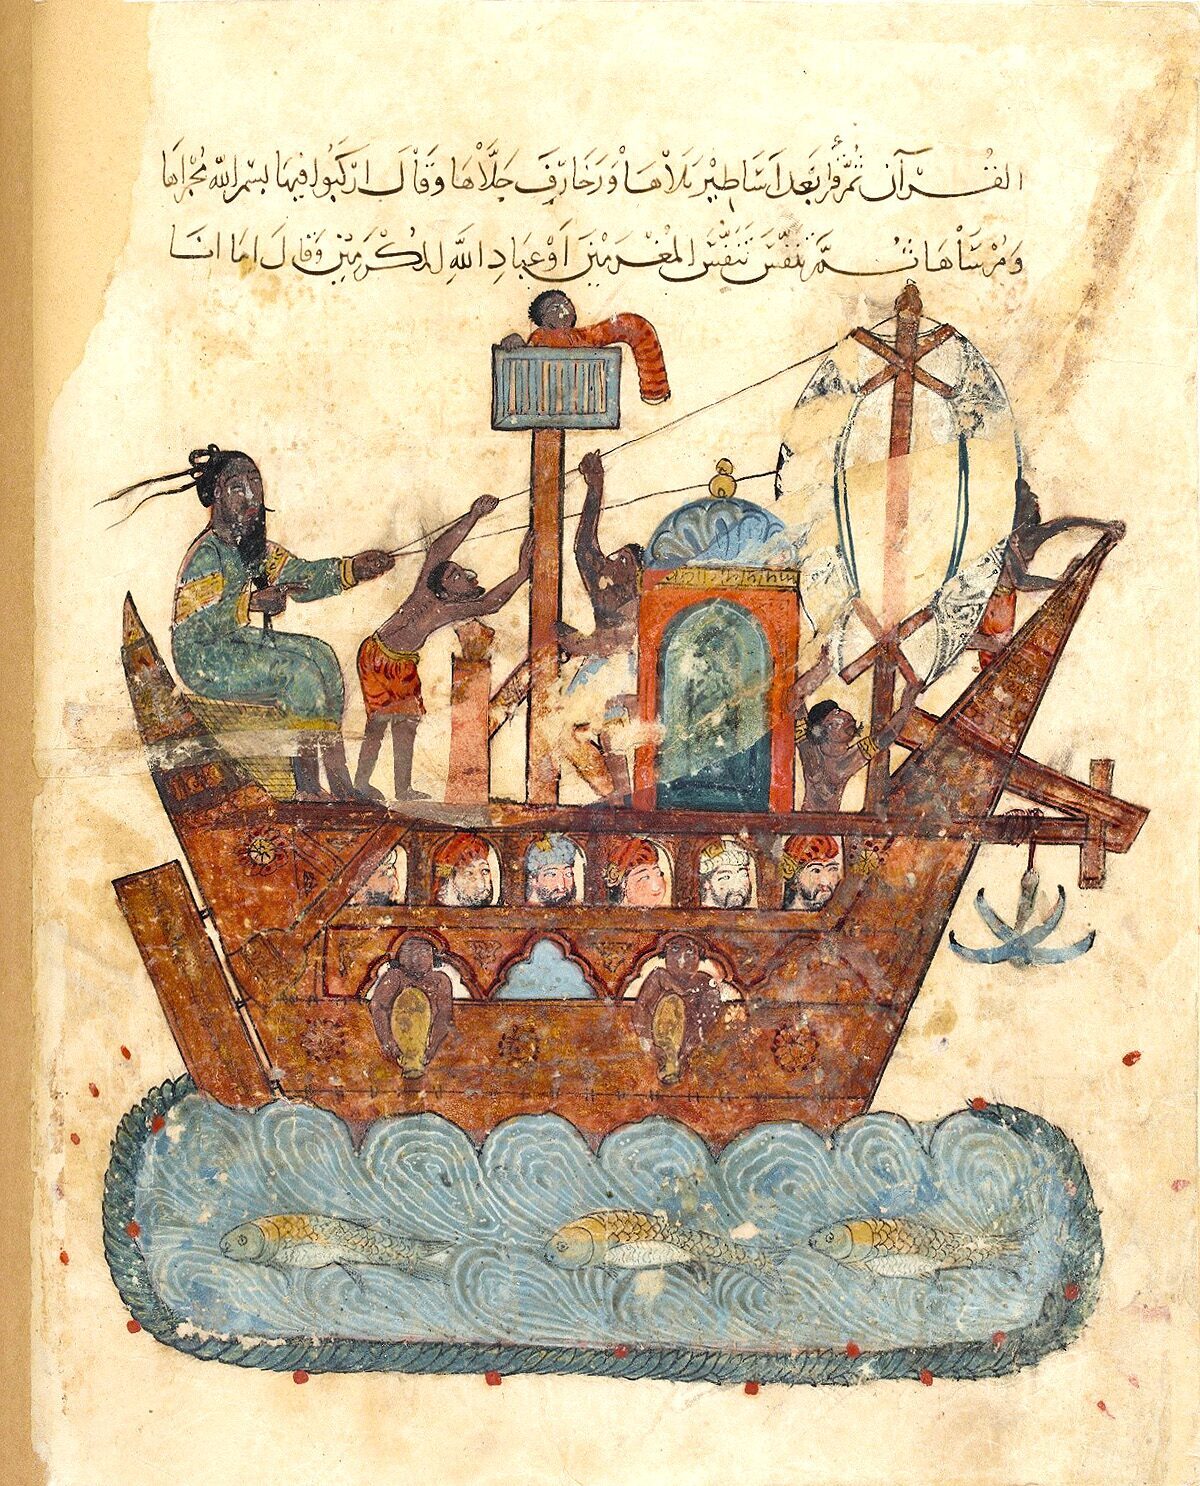 القُرآن ثُمَّ قرأ بَعد اَسَاطِيْرٍ تَلاْهَا وَزَخَارِفَ جَلَّاْهَا وَقَاْلَ ارْكَبُوا فِيهَا بِسْمِ اللّٰهِ مُجْرَاهَا
وَمُرْسَاْهَا ثُمَّ تَنَفَّسَ تَنَفُّسَ المُغْرَمِيْنَ اَوْ عِبَادِ اللّٰهِ المُكْرَمِيْنَ وَقَالَ اَمَا اَنَا